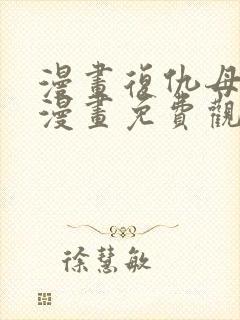 漫畫復仇母
漫畫免費觀
徐慧敏